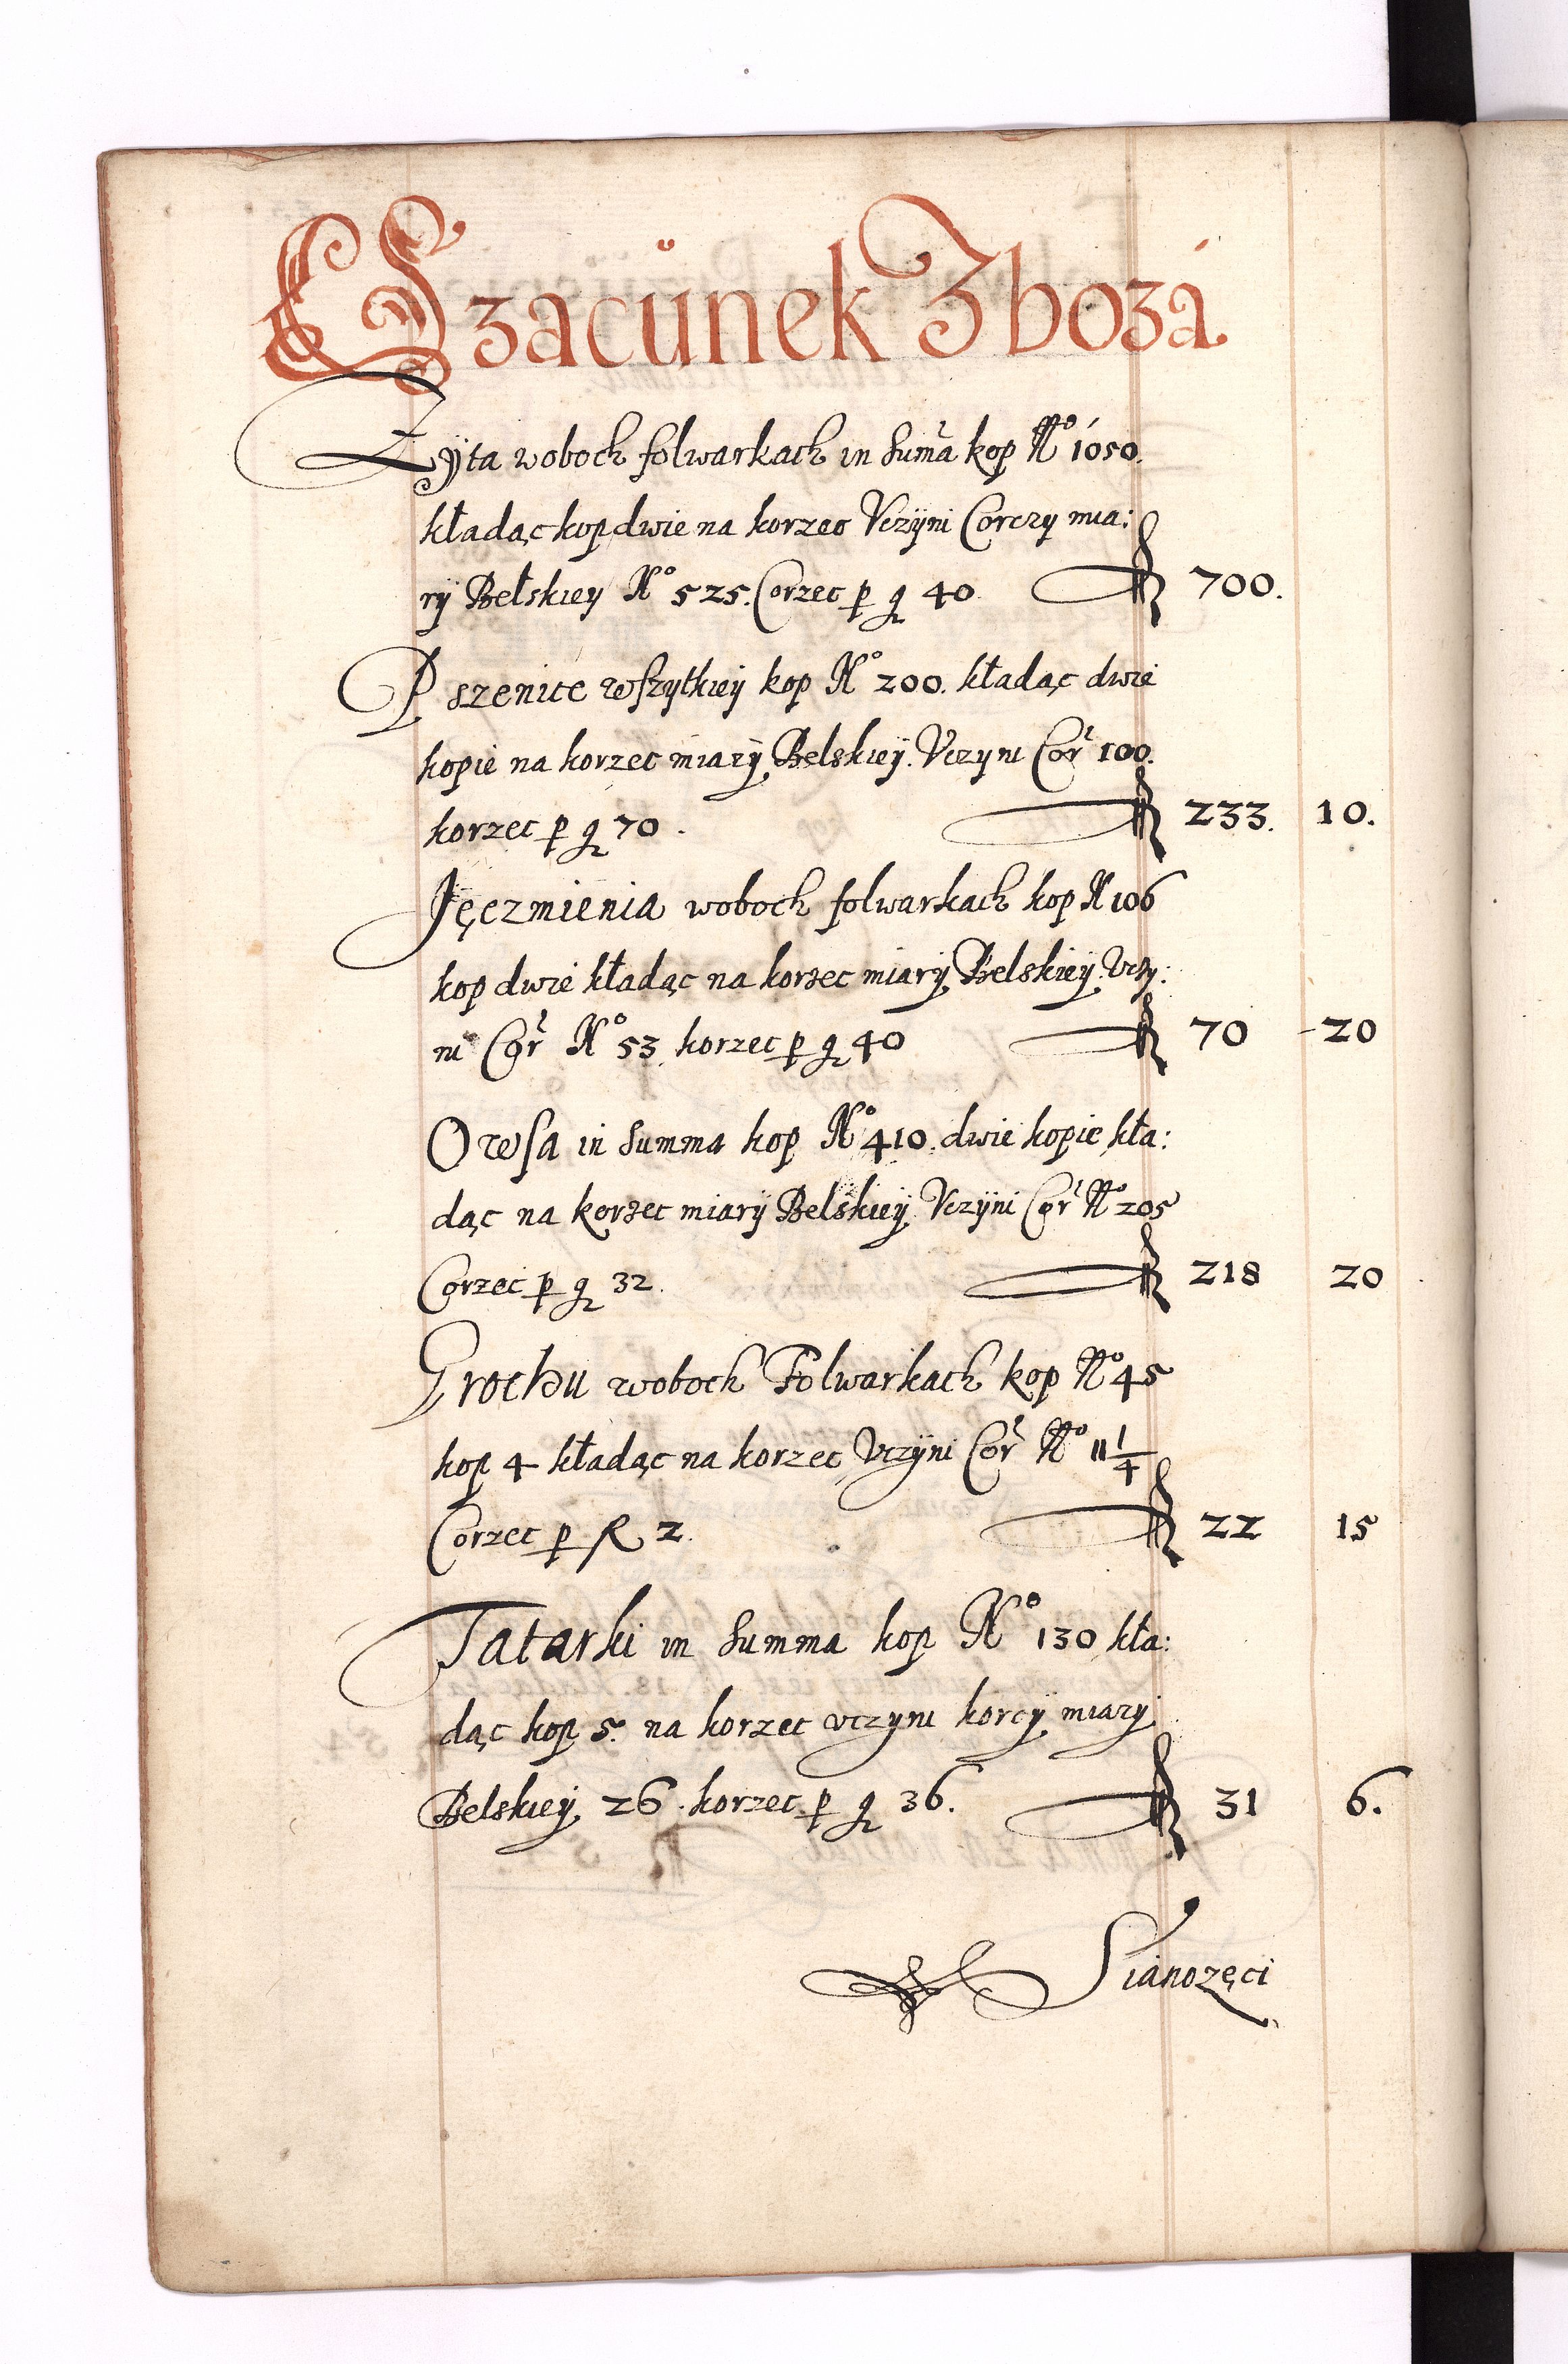 Szacünek Zboza
Zÿta woboch folwarkach in Suma kop No 1050.
kładąc kop dwie na korzec Vczÿni Corczy mia:
rÿ Bełskiey No 525. Corzec p g 40 fl 700.
Pszenice wszytkieÿ kop No 200. kładąc dwie
kopie na korzec miarÿ Belskieÿ. Vczyni Cor 100.
korzec p g 70. fl 233. 10.
Jęczmienia woboch folwarkach kop No 106
kop dwie kładąc na korzec miarÿ Belskieÿ. Vczy:
ni Cor No 53 korzec p g 40 fl 70 20
Owsa in Summa kop No 410. dwie kopie kła:
dąc na korzec miarÿ Belskieÿ Vczÿni Cor No 205
Corzec p g 32. fl 218 20
Grochu woboch Folwarkach kop No 45
kop 4 kładąc na korzec Vczÿni Cor No 11 1/4
Corzec p fl 2. fl 22 15
Tatarki in Summa kop No 130 kła:
dąc kop 5. na korzec vczyni korcÿ miarÿ
Belskieÿ 26. korzec p g 36. fl 31 6.
Sianozęci